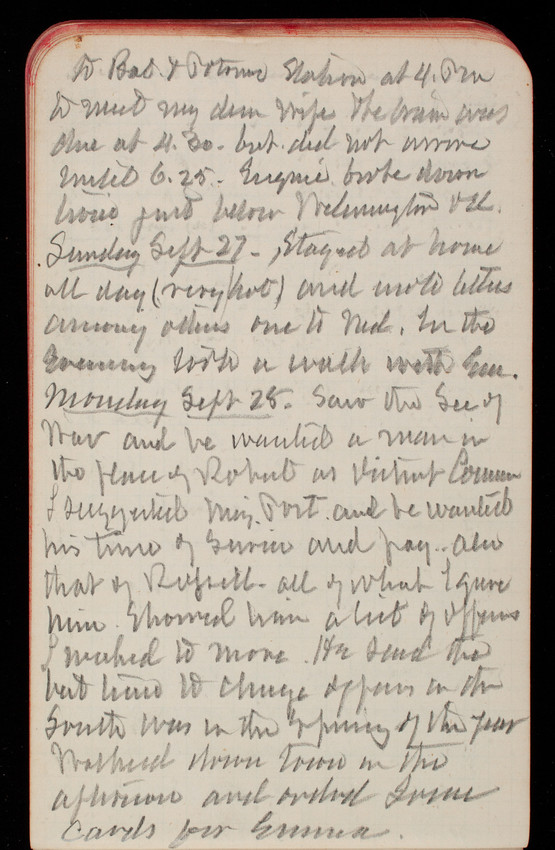 to Balt. & Potomac Station at 4. P.M
to meet my dear wife The train was
due at 4.30. but did not arrive
until 6.25. Engine broke down
twice just below Wilmington Del.
Sunday Sept 27. Stayed at home
all day (very hot) and wrote letters
among others one to Ned. In the
Evening took a walk with Em.
Monday Sept 28. Saw the Sec of
War and he wanted a man in
the place of Robert as
I suggested Maj. Post and he wanted
his time of service and pay. also
that of all of what I gave
him. Showed him a list of officers
I wished to move. He said the
best time to change officers in the
South was in the Spring of the year
Walked down town in the
afternoon and ordered some
cards for Emma.